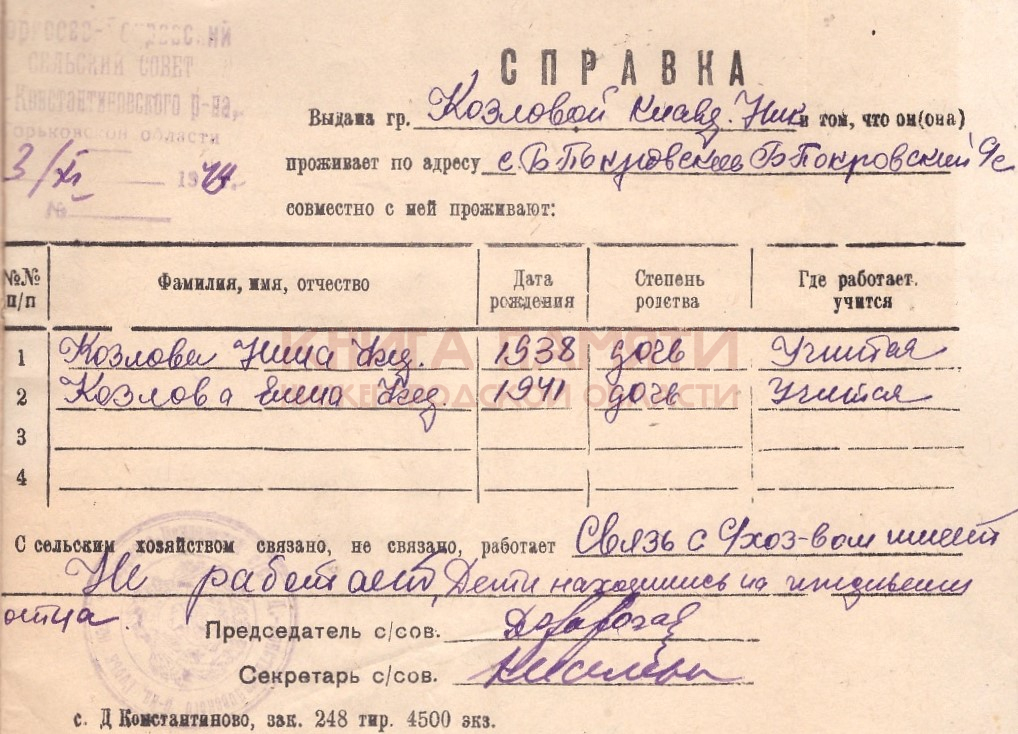 СЕЛЬСКИЙ СОВЕТ
Константиновского р-на,
Горьковской области
3/XI 19
№
СПРАВКА
Выдана гр. Козловой Клавд. Ник в том, что он(она)
проживает по адресу с. Б Покровское Б Покровский с/с
совместно с ней проживают:
№№ п/п Фамилия, имя, отчество Дата рождения Степень родства Где работает, учится
1 Козлова Нина 1938 дочь Учится
2 Козлова Елена 1941 дочь Учится
3
4
КНИГА ПАМЯТИ
НИЖЕГОРОДСКОЙ ОБЛАСТИ
С сельским хозяйством связано, не связано, работает Связь с с/хоз-вом имеет
Не работает, Дети находились на иждивении
отца
Председатель с/сов.
Секретарь с/сов.
с. Д Константиново, зак. 248 тир. 4500 экз.